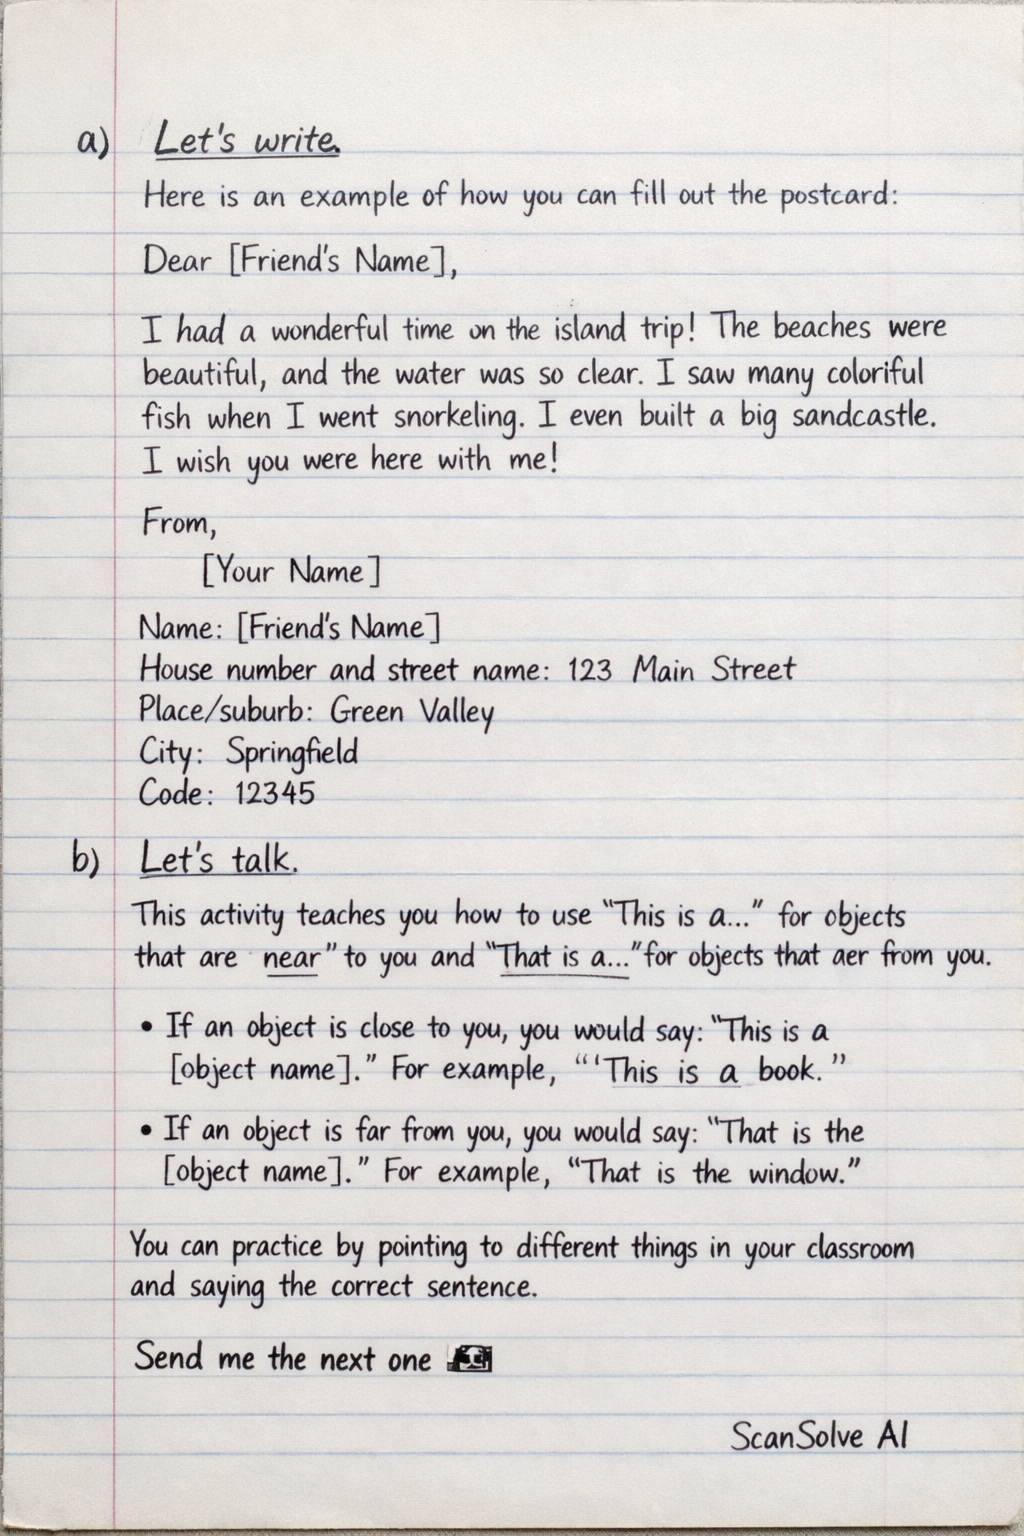 a) Let's write.
Here is an example of how you can fill out the postcard:
Dear [Friend's Name],
I had a wonderful time on the island trip! The beaches were
beautiful, and the water was so clear. I saw many coloriful
fish when I went snorkeling. I even built a big sandcastle.
I wish you were here with me!
From,
[Your Name]
Name: [Friend's Name]
House number and street name: 123 Main Street
Place/suburb: Green Valley
City: Springfield
Code: 12345
b) Let's talk.
This activity teaches you how to use “This is a...” for objects
that are near” to you and “That is a...” for objects that aer from you.
• If an object is close to you, you would say: “This is a
[object name].” For example, “‘This is a book.”
• If an object is far from you, you would say: “That is the
[object name].” For example, “That is the window.”
You can practice by pointing to different things in your classroom
and saying the correct sentence.
Send me the next one
ScanSolve AI